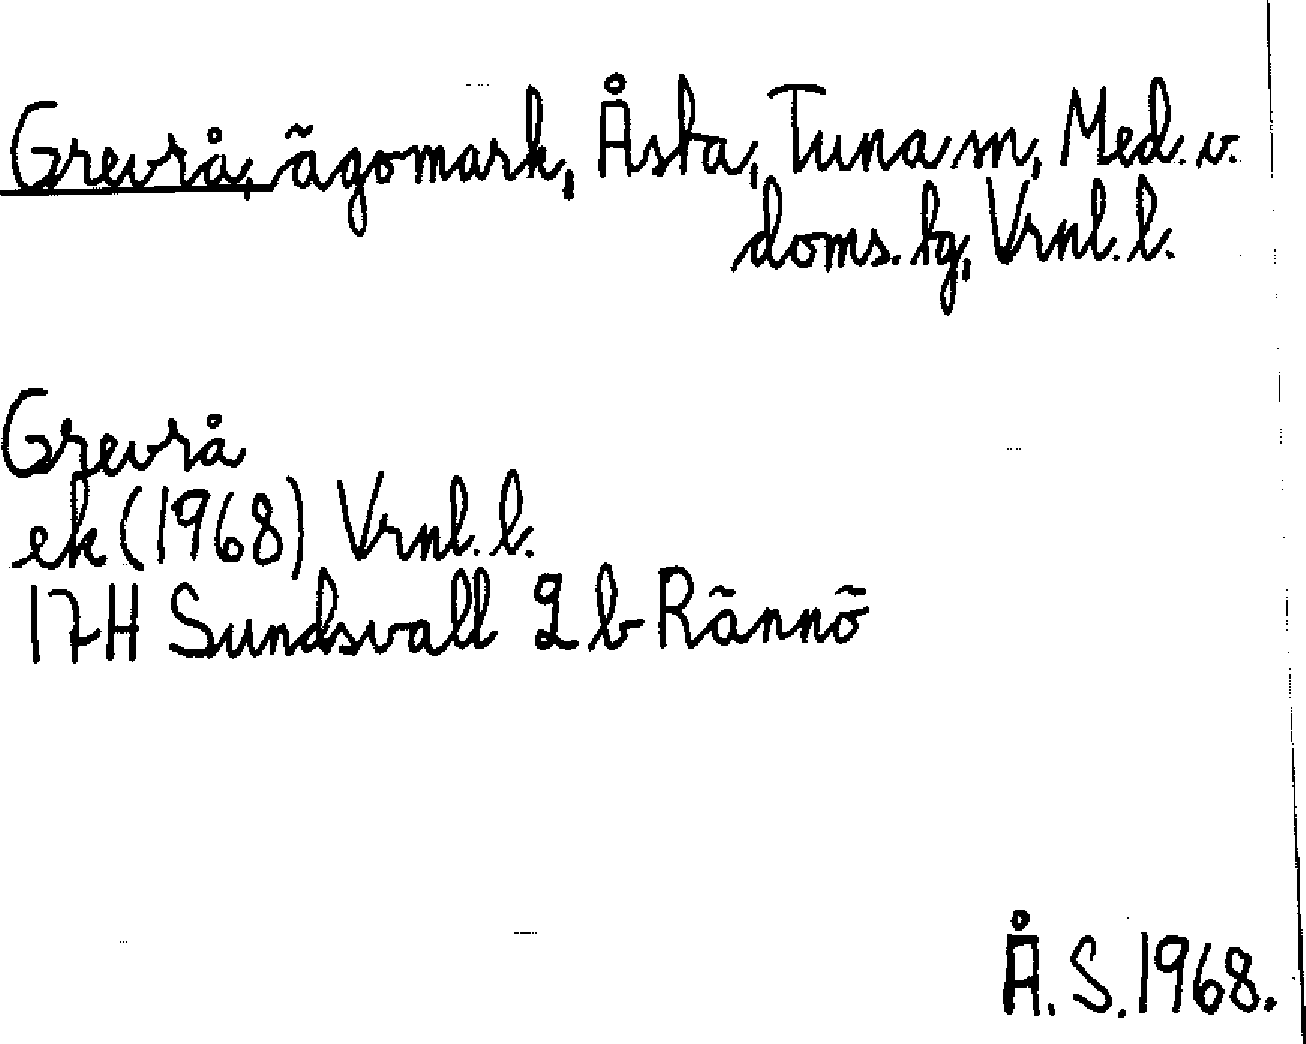 Grevrå, ägomark, Åsta, Tuna sn, Med. v.
doms. tg, Vrnl. l.
Grevrå
ek (1968) Vrnl. l.
17H Sundsvall 2 b Rännö
Å. S. 1968.